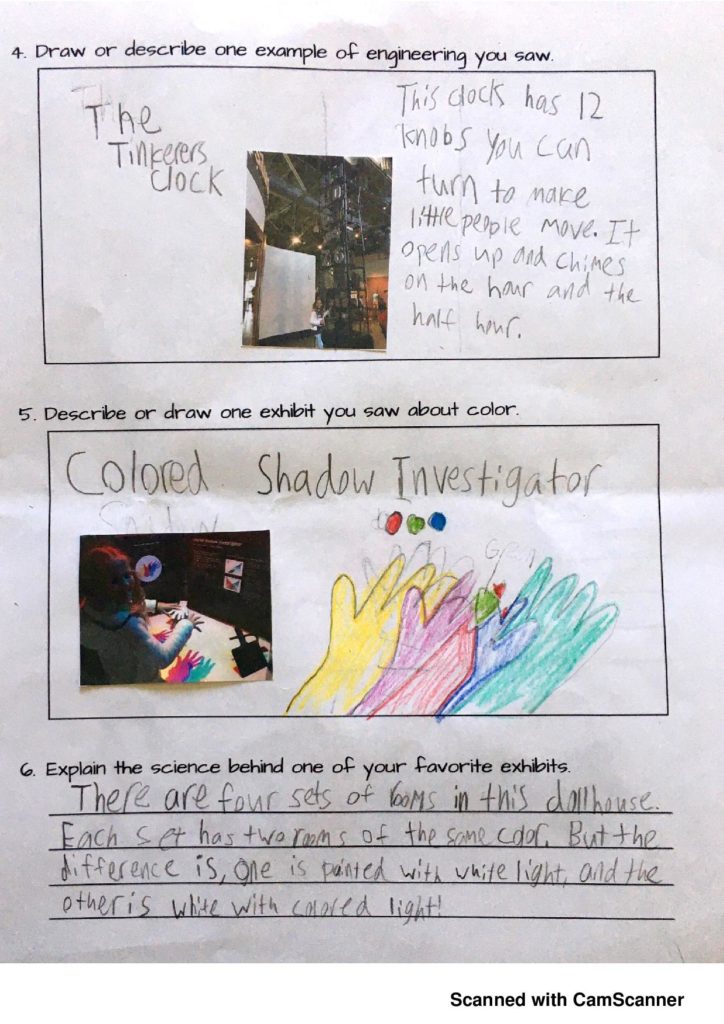 4. Draw or describe one example of engineering you saw.
The
Tinkerers
Clock
This clock has 12
knobs you can
turn to make
little people move. It
opens up and chimes
on the hour and the
half hour.
5. Describe or draw one exhibit you saw about color.
Colored Shadow Investigator
Shadow
6. Explain the science behind one of your favorite exhibits.
There are four sets of rooms in this dollhouse.
Each set has two rooms of the same color. But the
difference is, one is painted with white light, and the
other is white with colored light!
Scanned with CamScanner